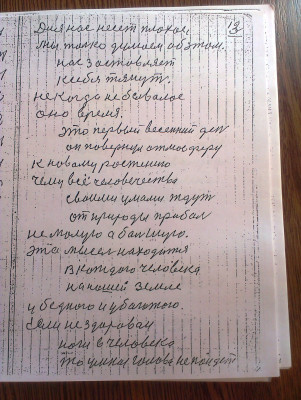 13
Для нас несет плохое,
мы только думаем об этом.
нас заставляет
к себе тянут.
некогда небывалое
оно время.
это первый весенний ден
он повернул атмосферу
к новому ростению
чему всё человечества
своими умами ждут
от природы прибал
не малую а большую.
эта мысел находится
в каждого человека
на нашей земле
у бедного и убагатого
если нездоровая
ноги в человека
то умная голова непойдет